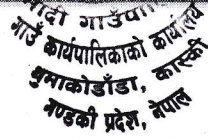 गाउँ कार्यपालिकाको कार्यालय
धुमाकोडाँडा, कास्की
गण्डकी प्रदेश, नेपाल